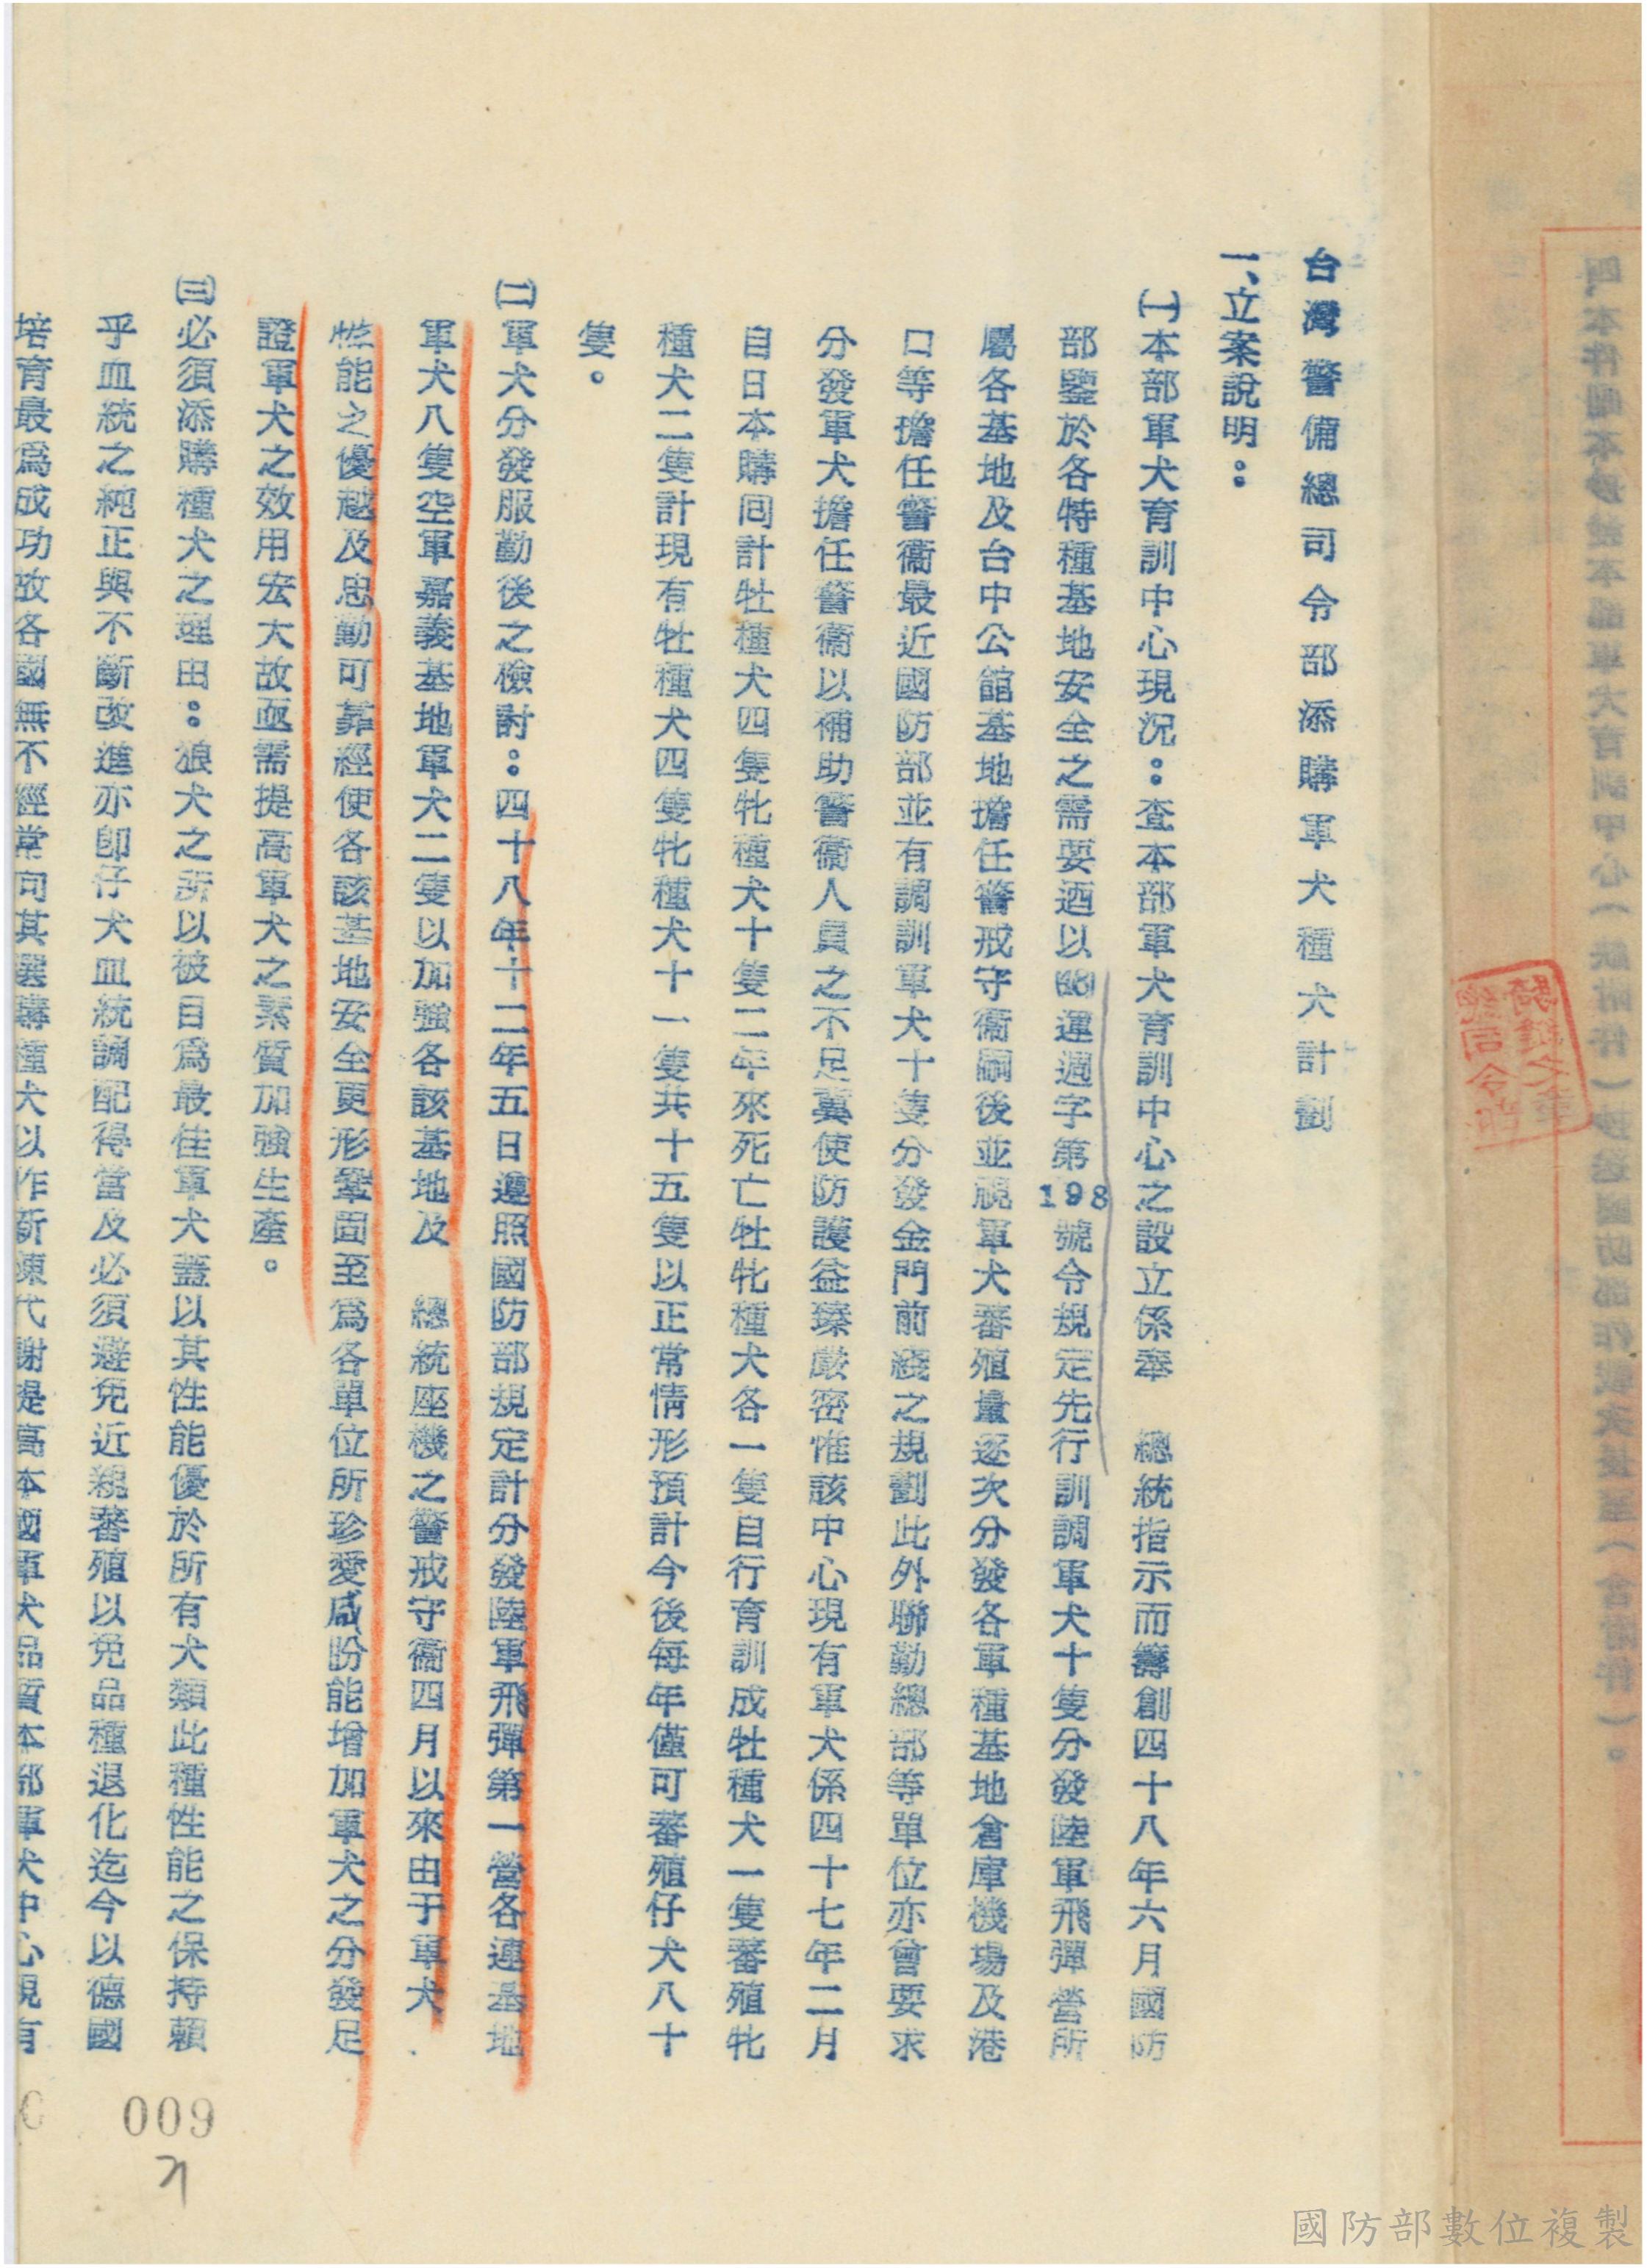 台灣警備總司令部添購軍犬種犬計劃
一、立案說明：
㈠本部軍犬育訓中心現況：查本部軍犬育訓中心之設立係奉　總統指示而籌創四十八年六月國防
部鑒於各特種基地安全之需要迺以㈱運週字第198號令規定先行訓調軍犬十隻分發陸軍飛彈營所
屬各基地及台中公館基地擔任警戒守衞嗣後並視軍犬蕃殖量逐次分發各軍種基地倉庫機場及港
口等擔任警衞最近國防部並有調訓軍犬十隻分發金門前綫之規劃此外聯勤總部等單位亦曾要求
分發軍犬擔任警衞以補助警衞人員之不足冀使防護益臻嚴密惟該中心現有軍犬係四十七年二月
自日本購回計牡種犬四隻牝種犬十隻二年來死亡牡牝種犬各一隻自行育訓成牡種犬一隻蕃殖牝
種犬二隻計現有牡種犬四隻牝種犬十一隻共十五隻以正常情形預計今後每年僅可蕃殖仔犬八十
隻。
㈡軍犬分發服勤後之檢討：四十八年十二年五日遵照國防部規定計分發陸軍飛彈第一營各連基地
軍犬八隻空軍嘉義基地軍犬二隻以加強各該基地及　總統座機之警戒守衞四月以來由于軍犬
性能之優越及忠勤可靠經使各該基地安全更形鞏固至爲各單位所珍愛咸盼能增加軍犬之分發足
證軍犬之效用宏大故亟需提高軍犬之素質加強生產。
㈢必須添購種犬之理由：狼犬之所以被目爲最佳軍犬蓋以其性能優於所有犬類此種性能之保持賴
乎血統之純正與不斷改進亦卽仔犬血統調配得當及必須避免近親蕃殖以免品種退化迄今以德國
培育最爲成功故各國無不經常向其選購種犬以作新陳代謝提高本國軍犬品質本部軍犬中心現有
009
國防部數位複製